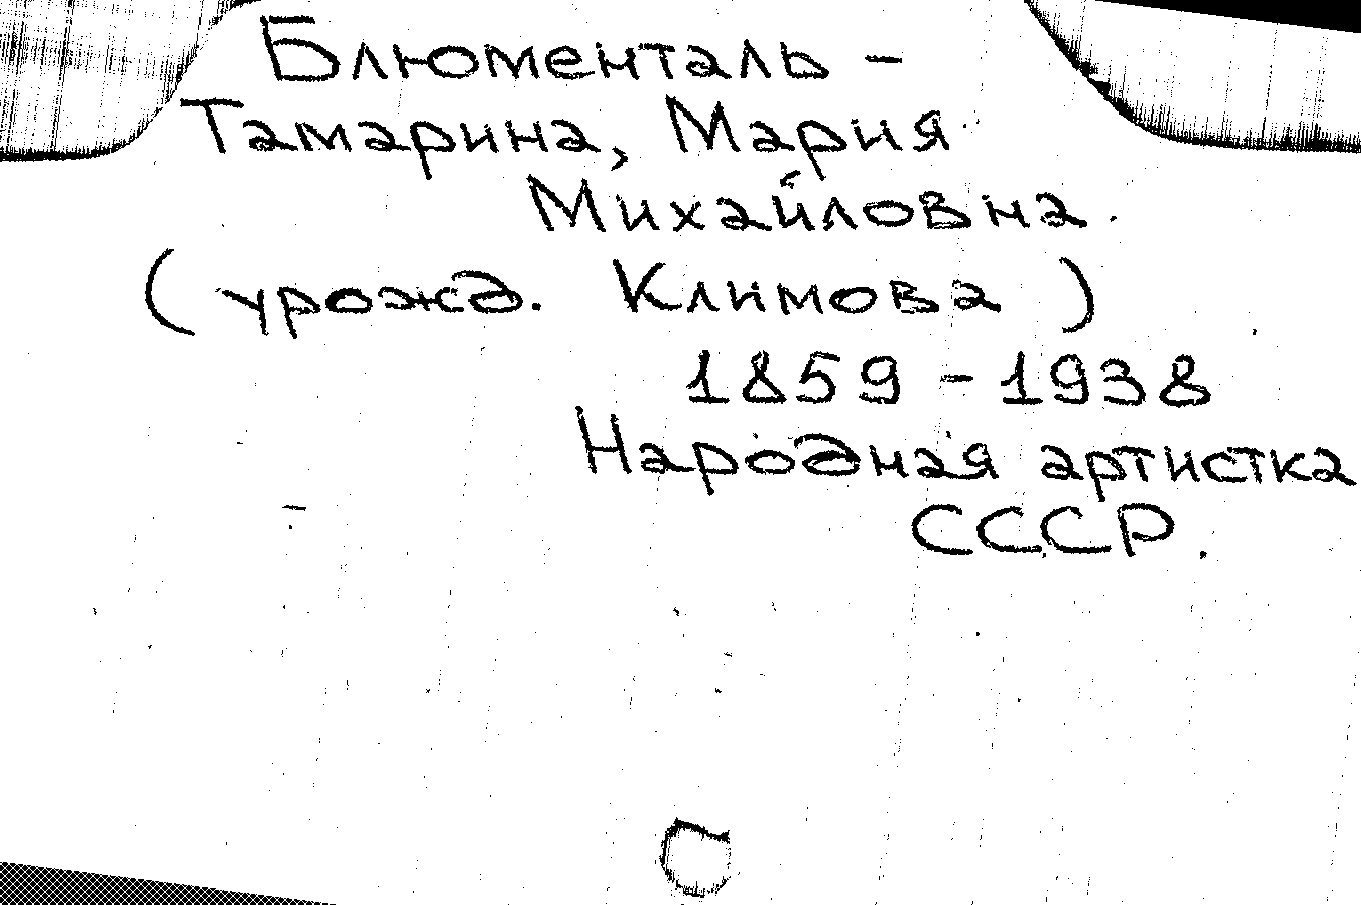 Блюменталь -
Тамарина, Мария
Михайловна.
(урожд. Климова)
1859 - 1938
Народная артистка
СССР.